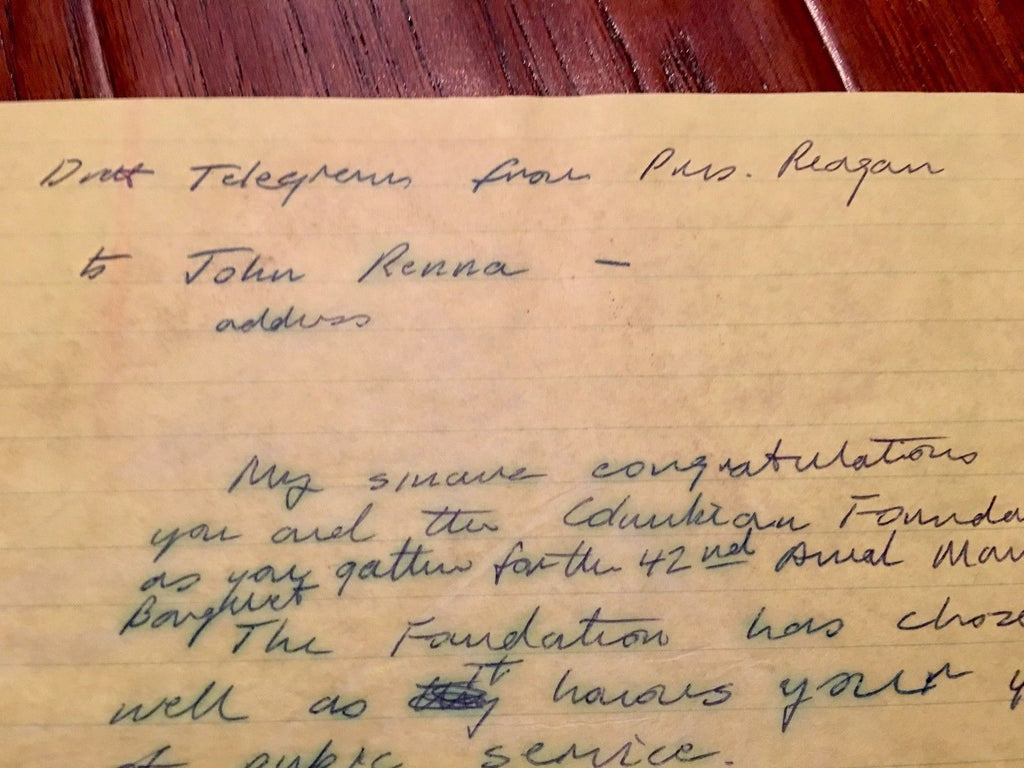 Draft Telegram from Pres. Reagan
to John Renna -
address
My sincere congratulations
you and the Columbian Founda
as you gather for the 42nd Annual
Banquet
The Foundation has chose
well as it honors your y
of public service.